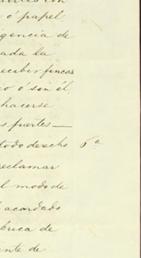 o ó papel
gencia de
ada la
recibir fincas
o ó sin él
hacerse
s fuertes —
todo derecho 6ª
reclamar
l modo de
acordado
brica de
ente de